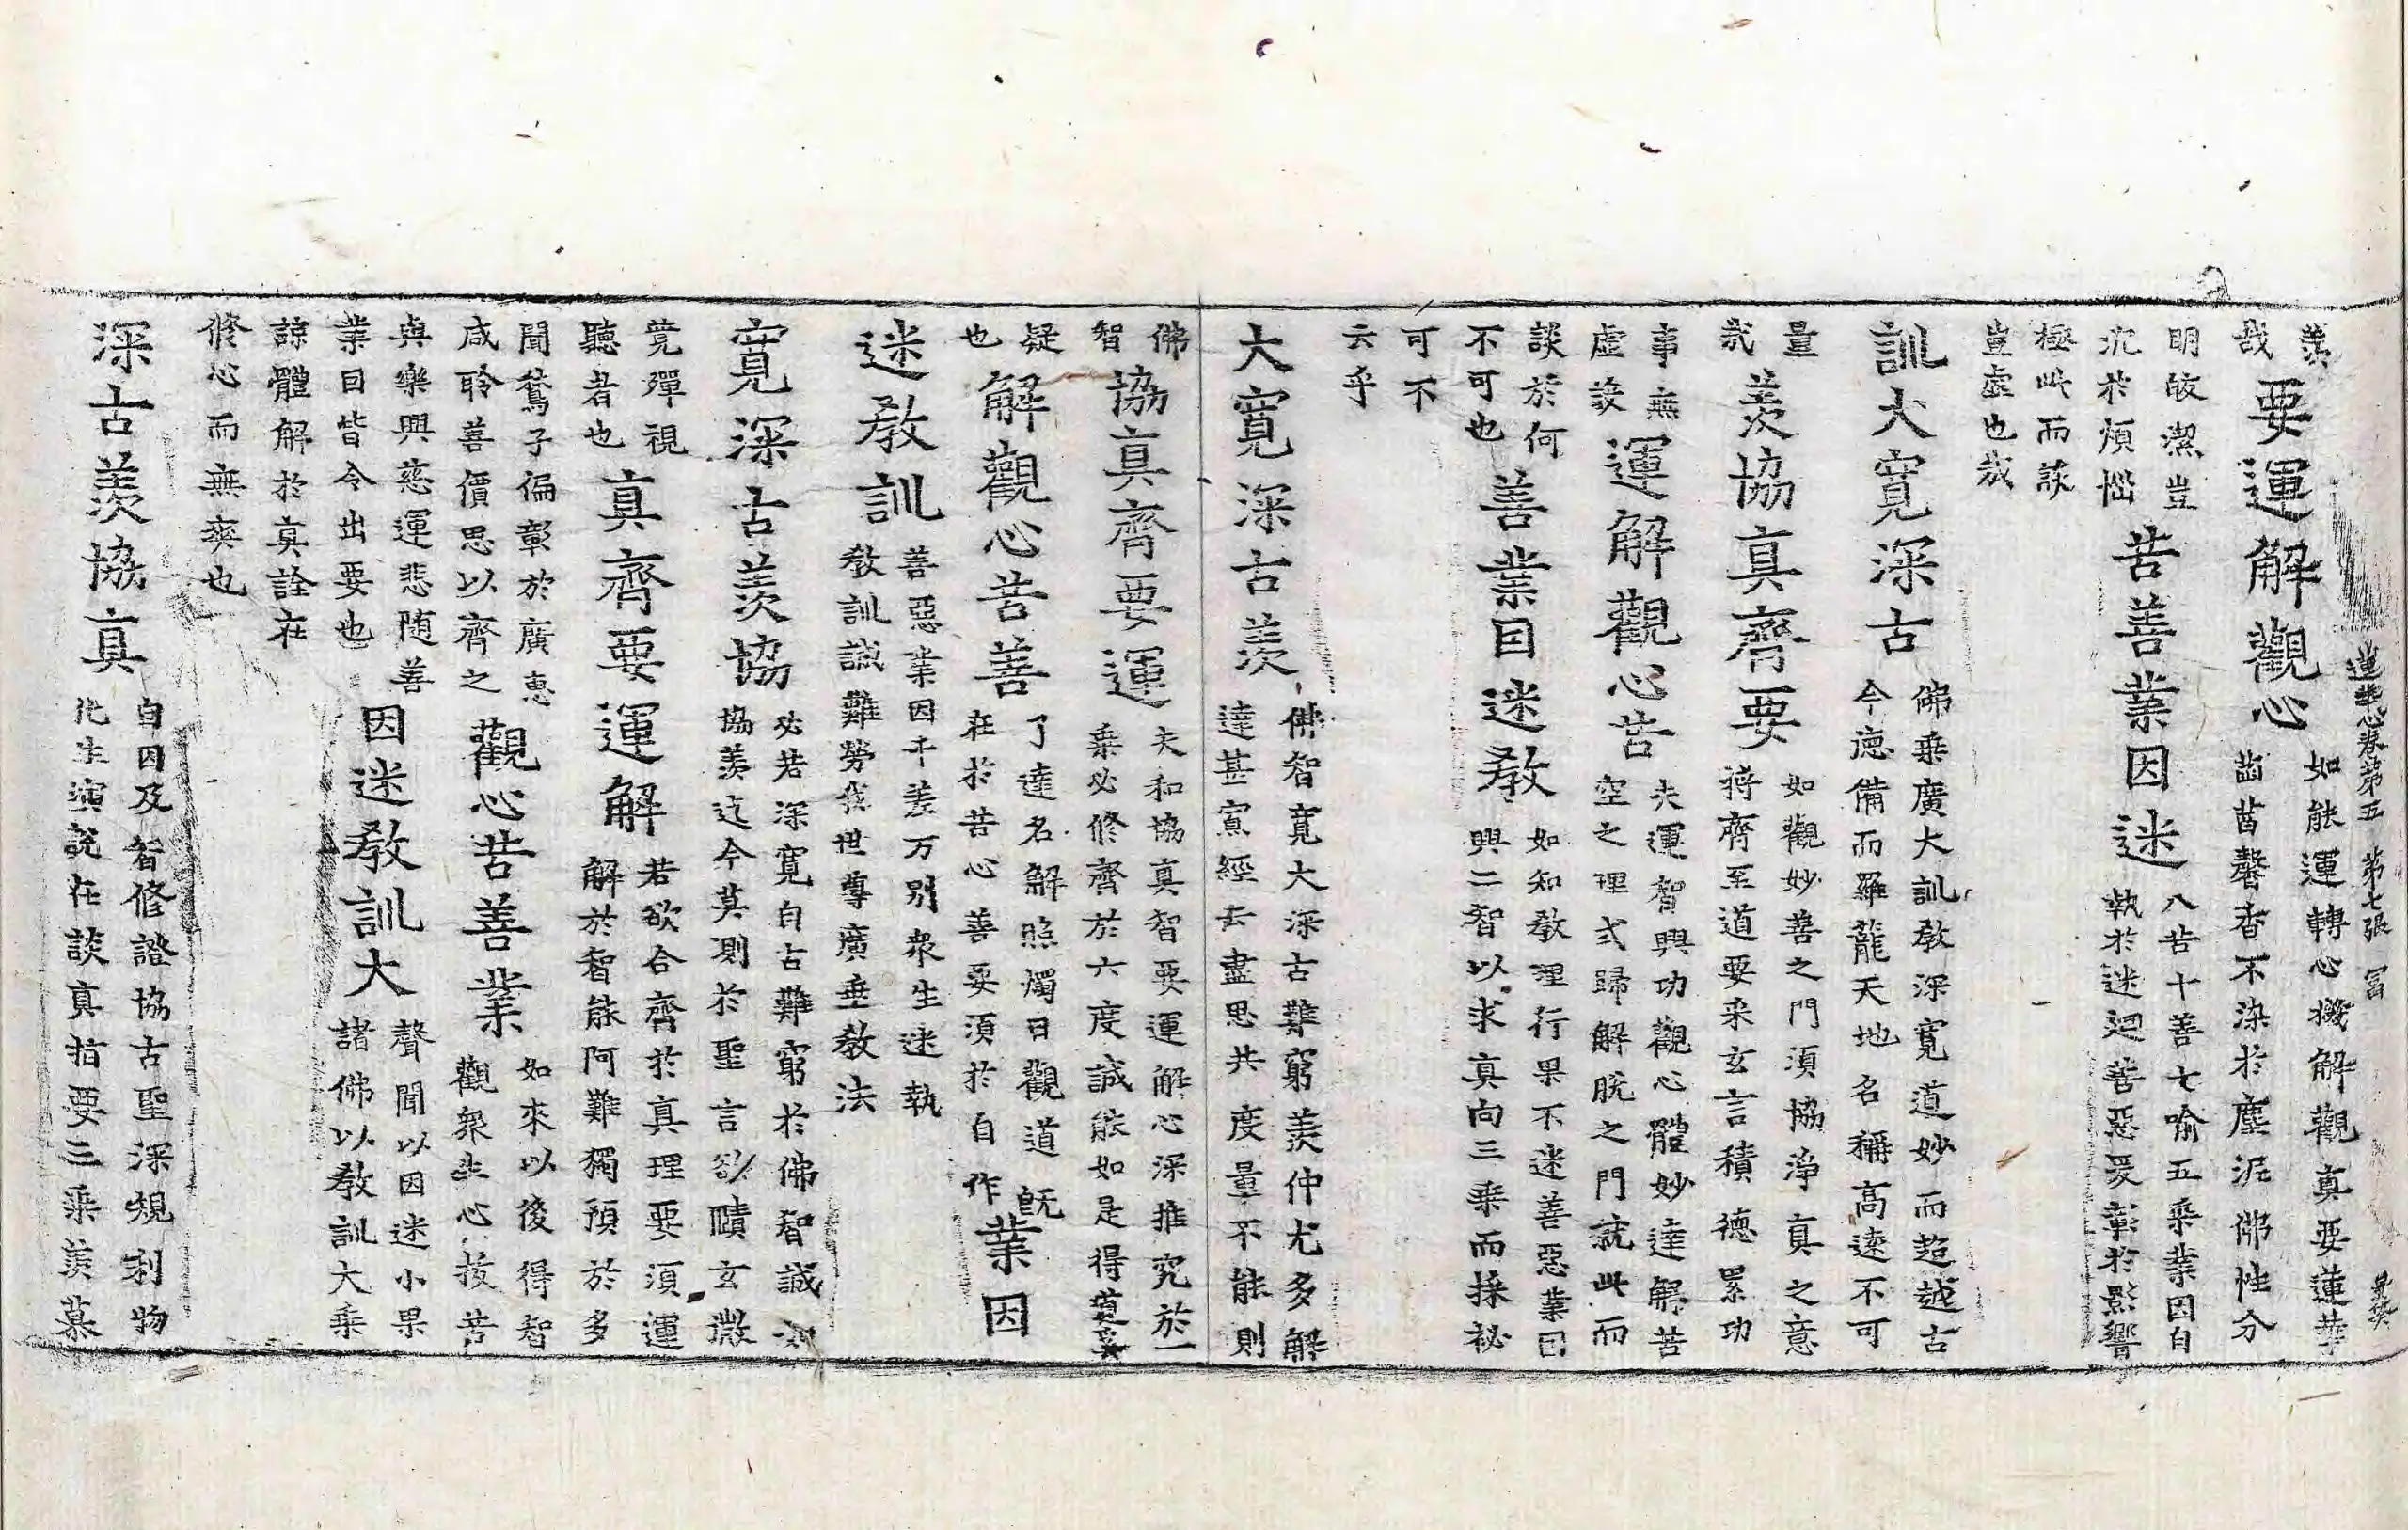 蓮華心卷第五 第七張 冨
羨
哉
要運解觀心
如能運轉心機解觀真要蓮華
苔馨香不染於塵泥佛性分
明皎潔豈
沉於煩惱
苦善業因迷
八苦十善七喻五乘業因自
執於迷迴善惡爰彰於影響
極此而談
豈虛也哉
訓大寬深古
佛乘廣大訓教深寬道妙而超越古
今德備而羅籠天地名稱高遠不可
量
哉
羨協真齊要
如觀妙善之門須協淨真之意
將齊至道要采玄言積德累功
事無
虛談
運解觀心苦
夫運智興功觀心體妙達解苦
空之理式歸解脫之門就此而
談於何
不可也
善業因迷教
如知教理行果不迷善惡業因
興二智以求真向三乘而採祕
可不
云乎
大寬深古羨
佛智寬大深古難窮羨仲尤多解
達甚寡經云盡思共度量不能則
佛
智
協真齊要運
夫和協真智要運解心深推究於一
乘必修齊於六度誠能如是得道奚
疑
也
解觀心苦善
了達名解照燭曰觀道既
在於苦心善要須於自作
業因
迷教訓
善惡業因千差万別衆生迷執
教訓誠難勞我世尊廣垂教法
寬深古羨協
必若深寬自古難窮於佛智誠如
協羨迄今莫測於聖言欲賾玄微
竟殫視
聽者也
真齊要運解
若欲合齊於真理要須運
解於智能阿難獨預於多
聞鶖子偏彰於廣惠
咸聆善價思以齊之
觀心苦善業
如來以後得智
觀衆生心拔苦
與樂興慈運悲随善
業因皆令出要也
因迷教訓大
聲聞以因迷小果
諸佛以教訓大乘
諒體解於真詮在
修心而無爽也
深古羨協真
自因及智修證協古聖深規利物
化生演説在談真指要三乘羨慕